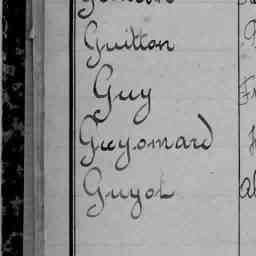 Guitton
Guy
Guyomard
Guyot